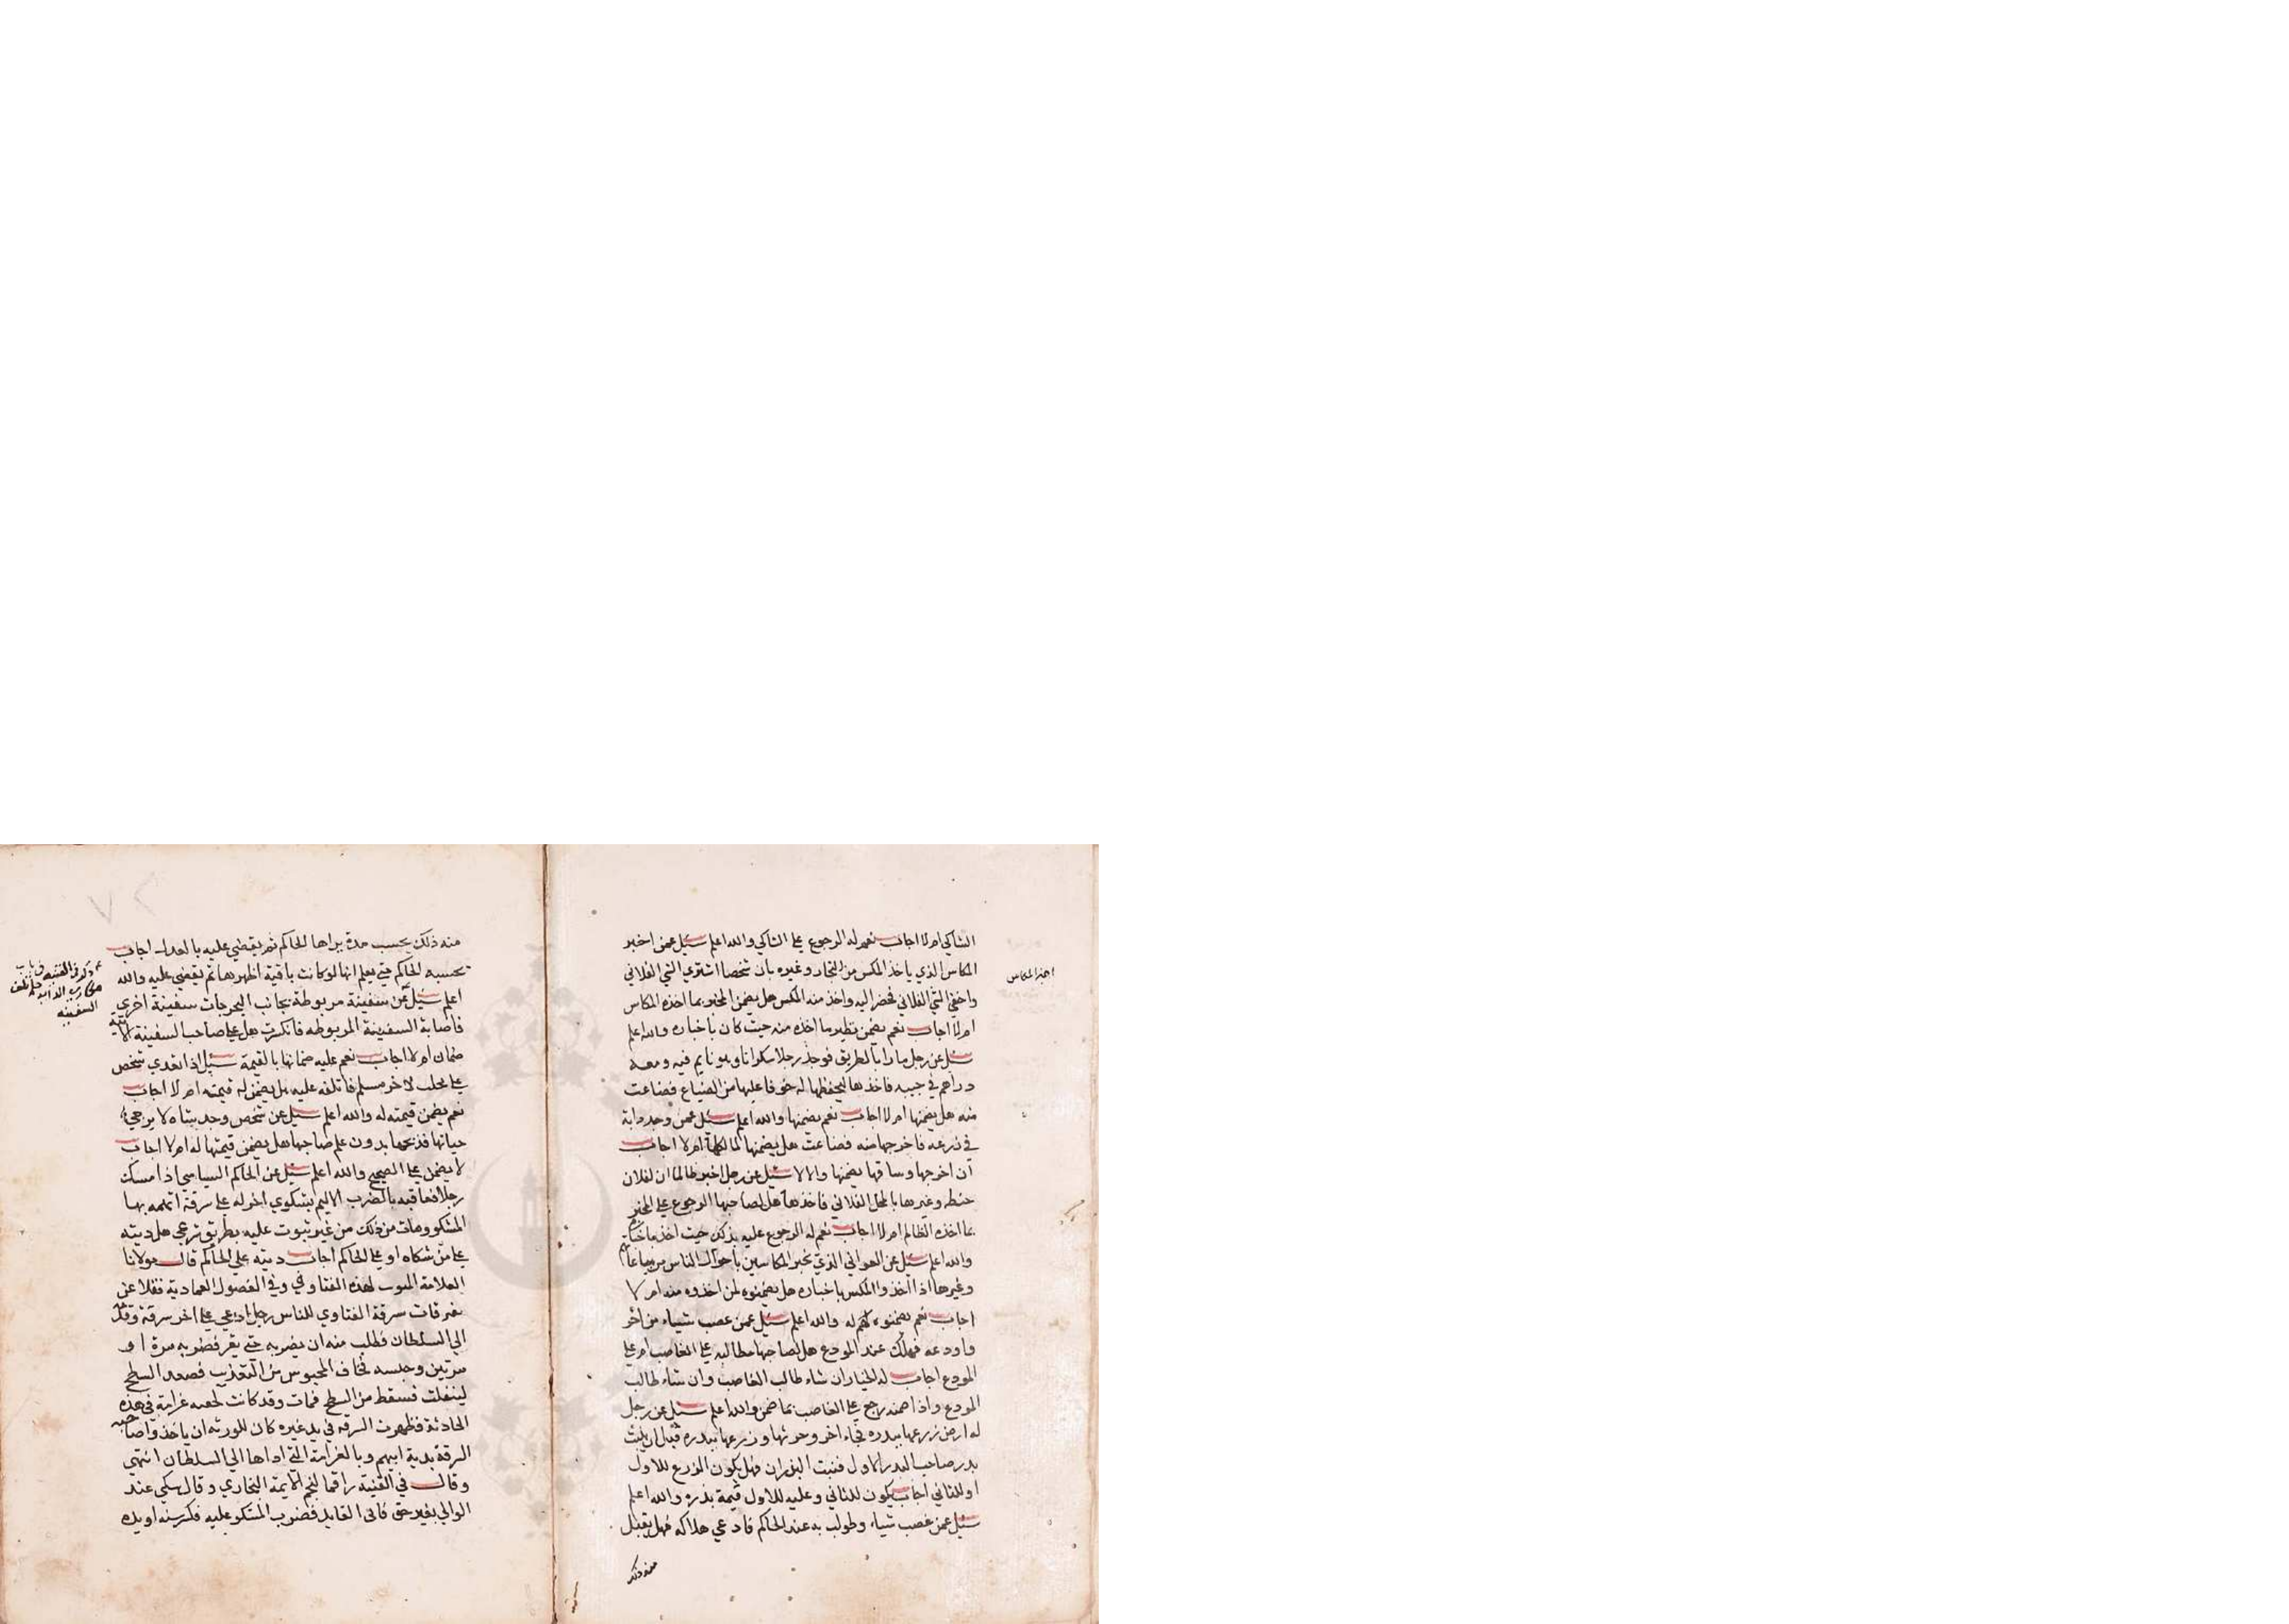 الشاكي ام لا اجاب نعم له الرجوع علي الشاكي والله اعلم سئل عمن اخبر
المكاس الذي ياخذ المكس من التجار وغيره بان شخصا اشتري الشي الفلاني
اخذ المكاس
واخفي الشي الفلاني فحضر اليه واخذ منه المكس هل يضمن المخبر بما اخذه المكاس
ام لا اجاب نعم يضمن نظير ما اخذه منه حيث كان باخباره والله اعلم
سئل عن رجل مارا بالطريق فوجد رجلا سكرانا وهو نايم فيه ومعه
دراهم في جيبه فاخذها ليحفظها له خوفا عليها من الضياع فضاعت
منه هل يضمنها ام لا اجاب نعم يضمنها والله اعلم سئل عمن وجد دابة
في زرعه فاخرجها منه فضاعت هل يضمنها لمالكها ام لا اجاب
ان اخرجها وساقها يضمنها والا لا سئل عن رجل اخبر ظالما ان لفلان
حنطه وغيرها بالمحل الفلاني فاخذها هل لصاحبها الرجوع علي المخبر
بما اخذه الظالم ام لا اجاب نعم له الرجوع عليه بذلك حيث اخذ باخباره
والله اعلم سئل عن العواني الذي يخبر المكاسين باحوال الناس من
وغيرها اذا اخذوا المكس باخباره هل يضمنوه لمن اخذوه منه ام لا
اجاب نعم يضمنوه له والله اعلم سئل عمن غصب شيا من اخر
واودعه فهلك عند المودع هل لصاحبها مطالبه علي الغاصب ام علي
المودع اجاب له الخيار ان شاء طالب الغاصب وان شاء طالب
المودع واذا ضمنه رجع علي الغاصب بما ضمن والله اعلم سئل عن رجل
له ارض زرعها ببدره فجاء اخر وحرثها وزرعها ببدره قبل ان ينبت
بدر صاحب البدر الاول فنبت البذران فهل يكون الزرع للاول
او للثاني اجاب يكون للثاني وعليه للاول قيمة بذره والله اعلم
سئل عمن غصب شياء وطولب به عند الحاكم فادعي هلاكه فهل يقبل
منه ذلك
منه ذلك يحبسه مدة يراها الحاكم ثم يقضي عليه بالعدل اجاب
يحبسه الحاكم حتي يعلم انها لو كانت باقية اظهرها ثم يقضي عليه والله
اعلم سئل عن سفينة مربوطة بجانب البحر جات سفينة اخري
فاصابة السفينة المربوطه فانكسرت هل علي صاحب السفينة الاتية
السفينه
ضمان ام لا اجاب نعم عليه ضمانها بالقيمة سئل اذا تعدي شخص
علي محلب لاخر مسلم فاتلفه عليه هل يضمن له قيمته ام لا اجاب
نعم يضمن قيمته له والله اعلم سئل عن شخص وجد شاه لا يرجي
حياتها فذبحها بدون علم صاحبها هل يضمن قيمتها له ام لا اجاب
لا يضمن علي الصحيح والله اعلم سئل عن الحاكم السياسي اذا مسك
رجلا فعاقبه بالضرب الاليم بشكوي اخر له علي سرقة اتهمه بها
المشكو ومات من ذلك من غير ثبوت عليه بطريق شرعي هل ديته
علي من شكاه او علي الحاكم اجاب ديته علي الحاكم قال مولانا
العلامة المبوب لهذه الفتاوي وفي الفصول العمادية نقلا عن
متفرقات سرقة الفتاوي للناس رجل ادعي علي اخر سرقة وقدمه
الي السلطان فطلب منه ان يضربه حتي يقر فضربه مرة او
مرتين وحبسه فخاف المحبوس من التعذيب فصعد السطح
لينفلت فسقط من السطح فمات وقد كانت لحقه غرامة في هذه
الحادثة فظهرت السرقه في يد غيره كان للورثه ان ياخذوا صاحب
السرقة بدية ابيهم وبالغرامة التي اداها الي السلطان انتهي
وقال في القنية راقما لنجم الايمة البخاري وقال شكي عند
الوالي بغير حق فاتي القايد فضرب المشكو عليه فكسر سنه او يده